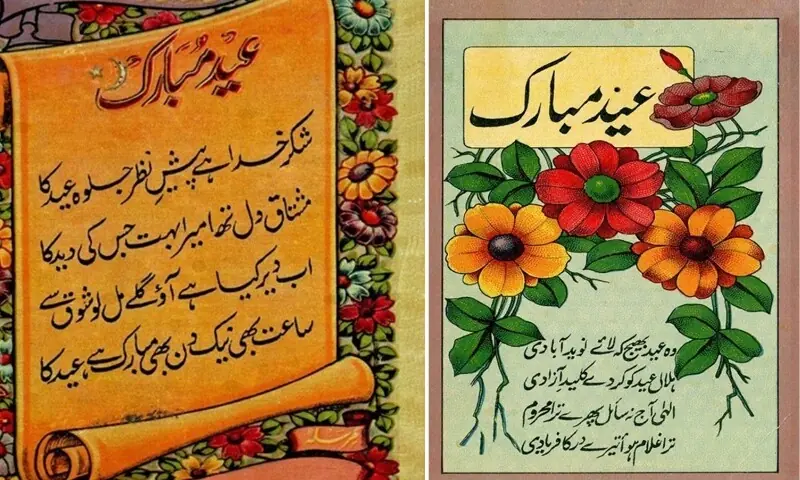 عید مُبارک
شکرِ خدا ہے پیشِ نظر جلوہ عید کا
مشتاق دل تھا میرا بہت جس کی دید کا
اب دیر کیا ہے آؤ گلے مل لو شوق سے
ساعت بھی نیک دن بھی مبارک ہے عید کا
عید مبارک
وہ عید بھیج کہ لائے نوید آبادی
ہلال عید کو کر دے کلیدِ آزادی
الٰہی آج نہ سائل پھرے ترا محروم
ترا غلام ہوا تیرے در کا فریادی